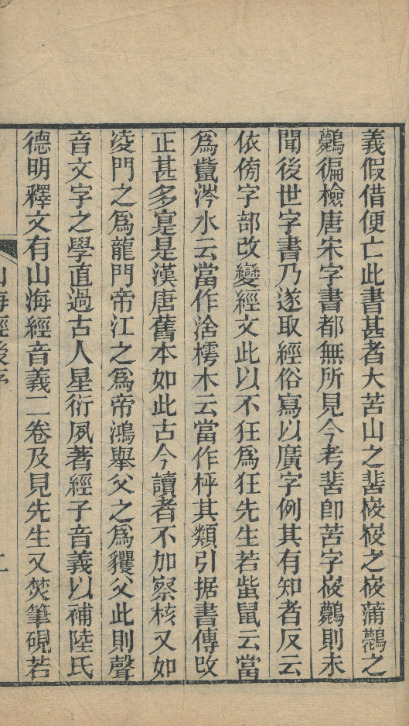 義假借便亡此書甚者大苦山之𦽅峳峳之峳蒲鸘之
鸘徧檢唐宋字書都無所見今考𦽅卽苦字峳鸘則未
聞後世字書乃遂取經俗寫以廣字例其有知者反云
依傍字部改變經文此以不狂爲狂先生若鴜鼠云當
爲䳄涔水云當作淦樗木云當作枰其類引据書傳改
正甚多寔是漢唐舊本如此古今讀者不加察核又如
凌門之爲龍門帝江之爲帝鴻舉父之爲玃父此則聲
音文字之學直過古人星衍夙著經子音義以補陸氏
德明釋文有山海經音義二卷及見先生又焚筆硯若
山海經後序